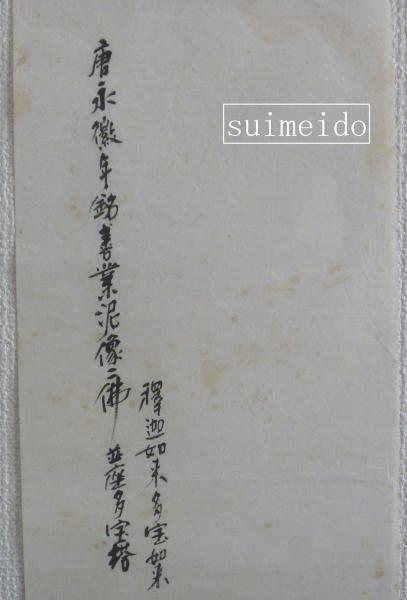 唐永徽年銘善業泥像二佛
並座多宝塔
釋迦如来多宝如来
suimeido